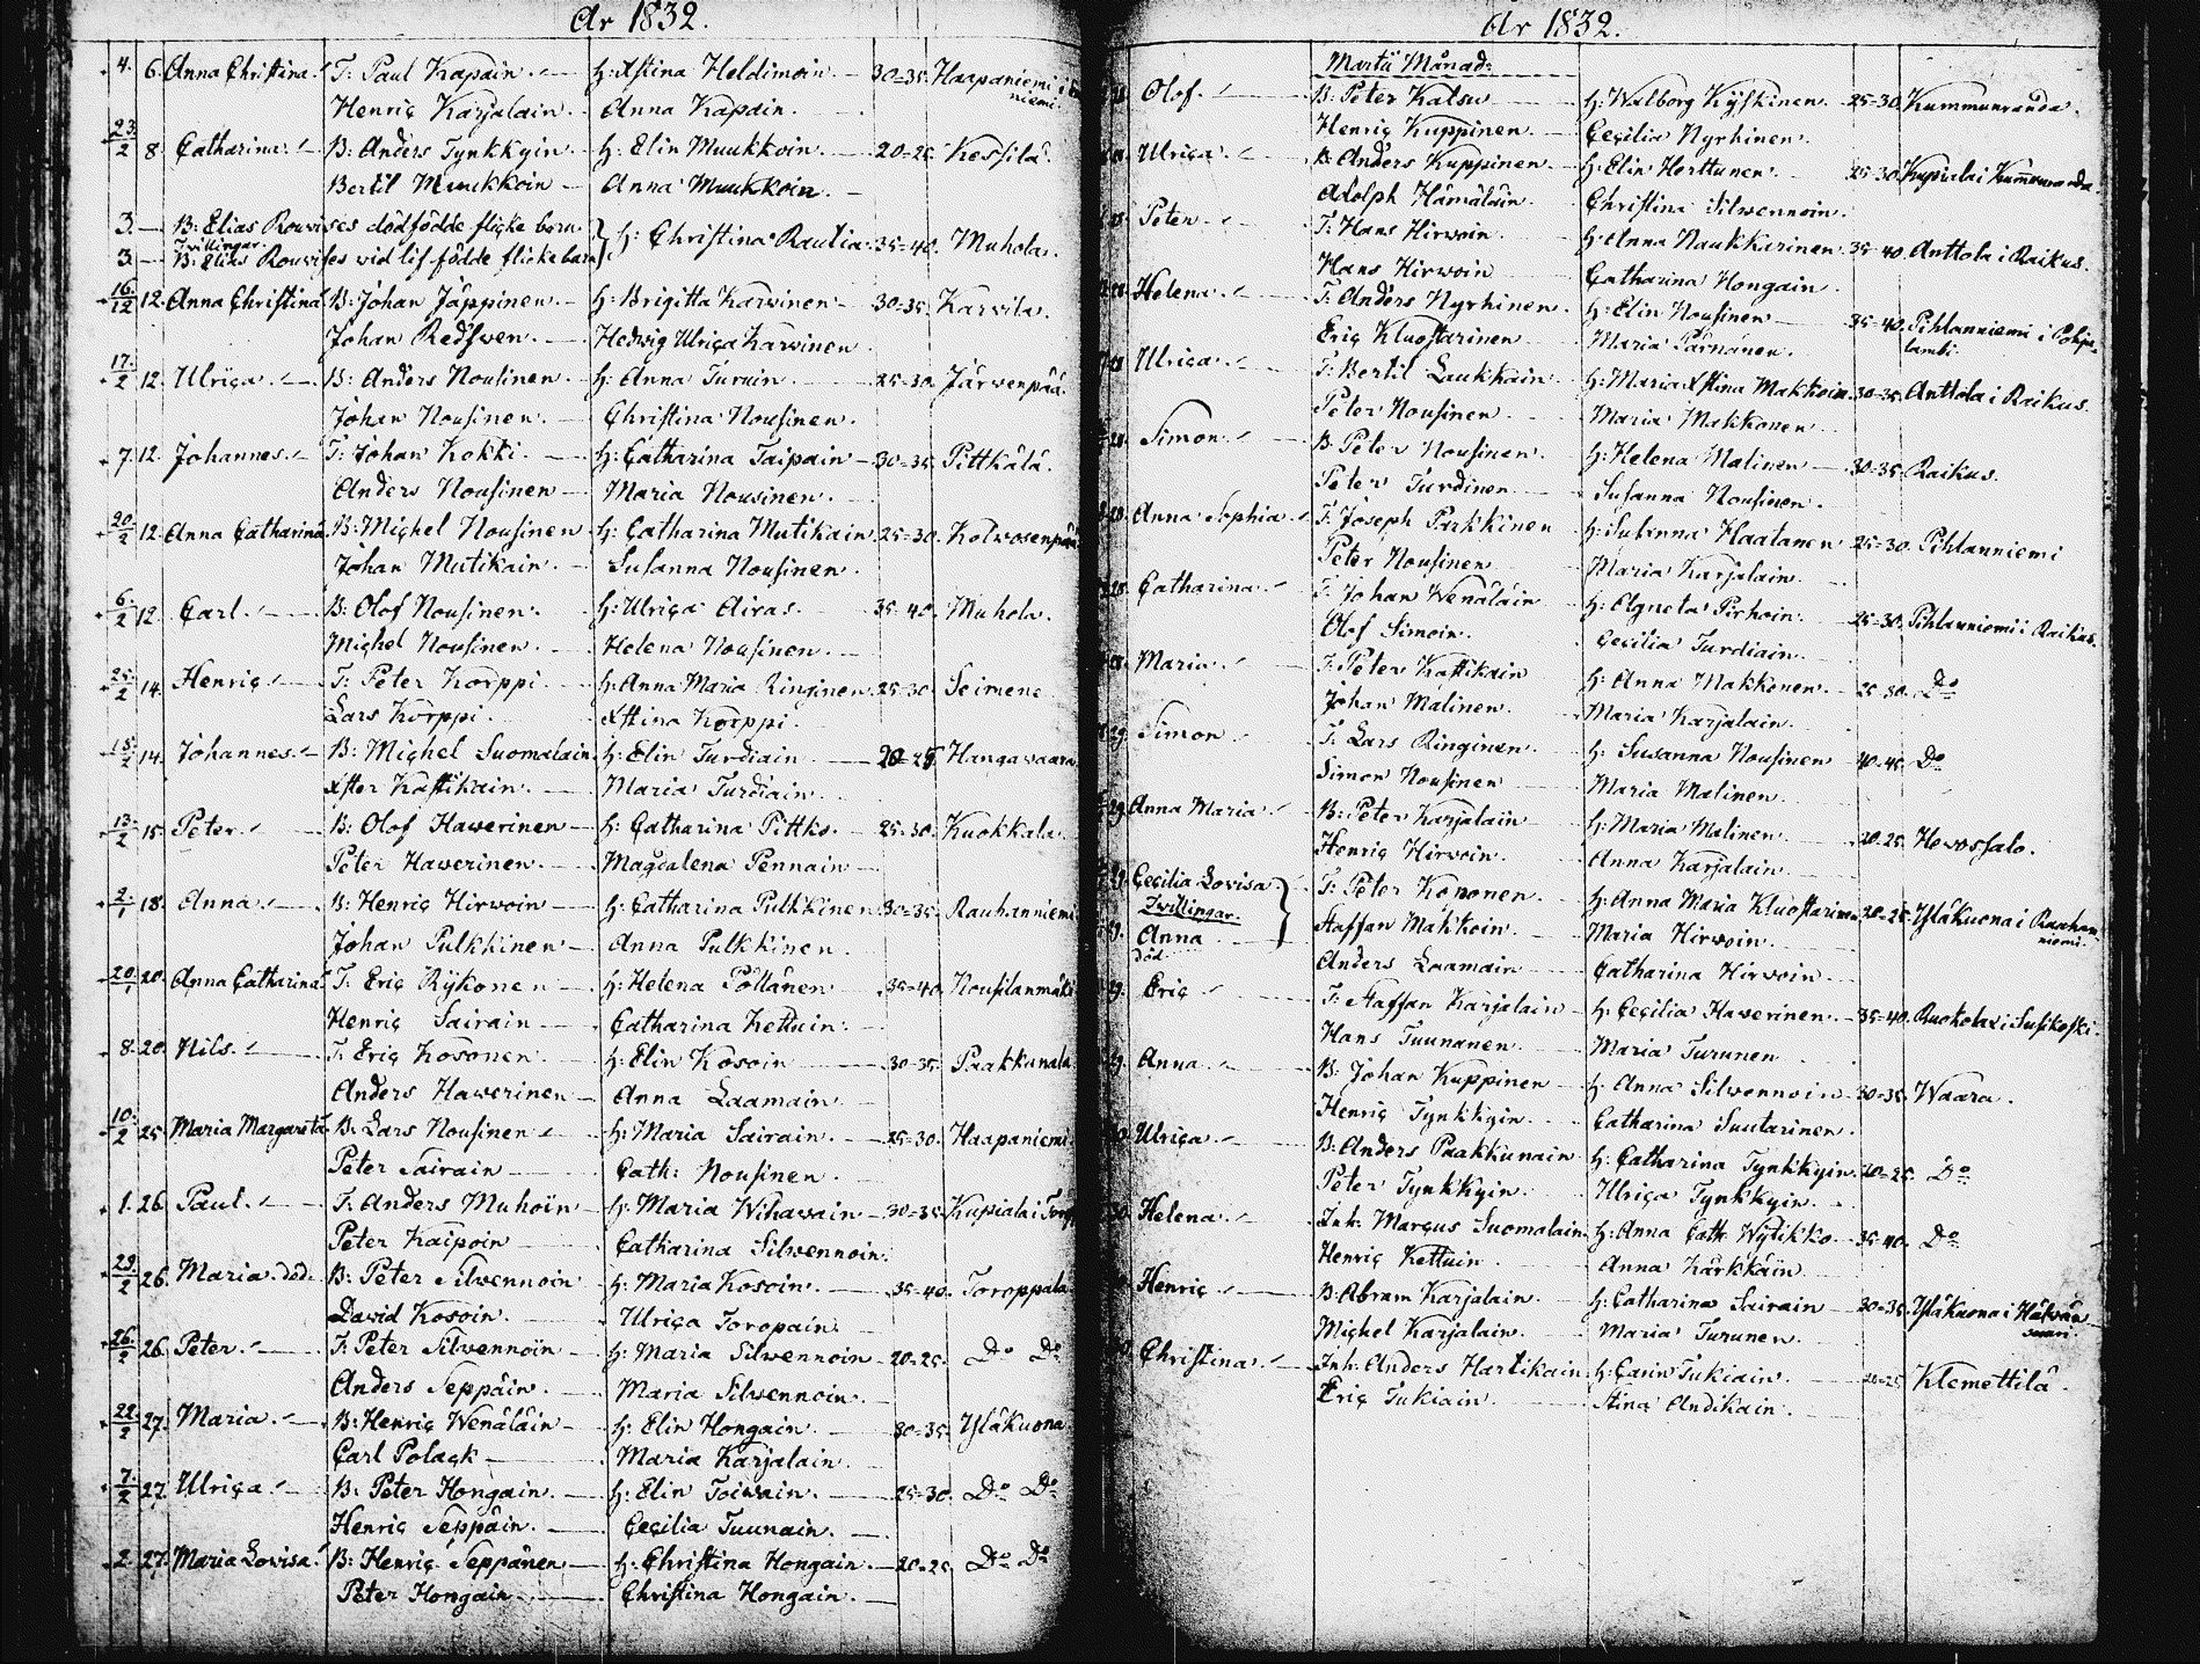 År 1832.
4. 6. Anna Christina. T: Paul Kapain. H: Xstina Heldimoin. 30=35. Haapaniemi i
niemi.
Henric Karjalain. Anna Kapain.
23/2 8. Catharina. B: Anders Tynkkyin. H: Elin Muukkoin. 20=25. Kessilä.
Bertil Muukkoin Anna Muukkoin.
3. B: Elias Rouvises dödfödde flicke barn
Tvillingar. H: Christina Rautia 35=40. Muhola.
3. B: Elias Rouvises vid lif födde flicke barn
16/12 12. Anna Christina. B: Johan Jäppinen. H: Brigitta Karvinen 30=35. Karvila.
Johan Redsven. Hedvig Ulrica Karvinen
17/2 12. Ulrica. B: Anders Nousinen. H: Anna Turuin. 25=30. Järvenpää.
Johan Nousinen. Christina Nousinen.
7. 12. Johannes. T: Johan Kokki. H: Catharina Taipain 30=35. Pittkälä.
Anders Nousinen Maria Nousinen.
20/2 12. Anna Catharina. B: Michel Nousinen H: Catharina Mutikain 25=30. Kolvosenpää
Johan Mutikain. Susanna Nousinen.
6/2 12. Carl. B: Olof Nousinen. H: Ulrica Airas. 35=40. Muhola.
Michel Nousinen. Helena Nousinen.
25/2 14. Henric T: Peter Korppi. H: Anna Maria Ringinen 25=30. Seimene
Lars Korppi. Xstina Korppi.
15/2 14. Johannes. B: Michel Suomalain. H: Elin Turdiain. 20=25. Hangavaara
Xster Kattikain. Maria Turdiain.
13/2 15. Peter. B: Olof Haverinen H: Catharina Pittko. 25=30. Kuokkala.
Peter Haverinen. Magdalena Pennain
2/1 18. Anna. B: Henric Hirvoin H: Catharina Pulkkinen 30=35. Rauhanniemi
Johan Pulkkinen Anna Pulkkinen.
20/1 20. Anna Catharina. T: Eric Rijkonen H: Helena Pöllänen 35=40. Nousilanmäki
Henric Sairain Catharina Kettuin.
8. 20. Nils. T: Eric Kosonen. H: Elin Kosoin 30=35. Paakkunala
Anders Haverinen Anna Laamain
10/2 25. Maria Margareta. B: Lars Nousinen H: Maria Sairain. 25=30. Haapaniemi
Peter Sairain Cath: Nousinen.
1. 26. Paul. T: Anders Muhoin H: Maria Wihavain 30=35. Kupiala i
Peter Kaipoin Catharina Silvennoin.
29/2 26. Maria. död. B: Peter Silvennoin H: Maria Kosoin. 35=40. Toroppala
David Kosoin. Ulrica Toropain.
26/2 26. Peter. T: Peter Silvennoin H: Maria Silvennoin 20=25. Do Do
Anders Seppäin. Maria Silvennoin.
22/2 27. Maria. B: Henric Wenäläin H: Elin Hongain. 30=35. Ylläkuona
Carl Polack Maria Karjalain.
7/2 27. Ulrica. B: Peter Hongain. H: Elin Toivain. 25=30. Do Do
Henric Seppäin. Cecilia Tuunain.
2. 27. Maria Lovisa. B: Henric Seppänen H: Christina Hongain. 20=25. Do Do
Peter Hongain Christina Hongain.
År 1832.
Martii Månad:
Olof. B: Peter Katsu H: Walborg Kyskinen. 25=30. Kummunranda.
Henric Kuppinen. Cecilia Nyrhinen.
Ulrica. B: Anders Kuppinen H: Elin Herttunen. 25=30. Kupiala i Kummunranda.
Adolph Hämäläin. Christina Silvennoin.
Peter T: Hans Hirvoin H: Anna Naukkarinen 35=40. Anttola i Raikus.
Hans Hirvoin Catharina Hongain.
Helena. T: Anders Nyrhinen. H: Elin Nousinen 35=40. Pihlanniemi i Pohja-
lambi.
Eric Kluostarinen Maria Pärnänen.
Ulrica. T: Bertil Laukkain H: Maria Xstina Makkoin. 30=35. Anttola i Raikus.
Peter Nousinen. Maria Makkonen
28. Simon. B: Peter Nousinen. H: Helena Malinen 30=35. Raikus.
Peter Turdinen. Susanna Nousinen.
28. Anna Sophia. T: Joseph Parkkinen H: Susanna Haatanen 25=30. Pihlanniemi
Peter Nousinen Maria Karjalain.
28. Catharina. T: Johan Wenäläin H: Agneta Pirhoin. 25=30. Pihlanniemi i Raikus.
Olof Simoin. Cecilia Turdiain.
28. Maria. T: Peter Kattikain H: Anna Makkonen. 25=30. Do
Johan Malinen. Maria Karjalain.
29. Simon T: Lars Ringinen. H: Susanna Nousinen 40=45. Do
Simon Nousinen Maria Malinen.
29. Anna Maria. B: Peter Karjalain H: Maria Malinen. 20=25. Hevossalo.
Henric Hirvoin. Anna Karjalain
29. Cecilia Lovisa T: Peter Kononen. H: Anna Maria Kluostarinen 20=25. Ylläkuona i Rauhan-
niemi.
Tvillingar.
Staffan Makkoin. Maria Hirvoin.
29. Anna
död.
Anders Laamain Catharina Hirvoin
29. Eric T: Staffan Karjalain H: Cecilia Haverinen. 35=40. Ruokola i Susikoski.
Hans Tuunanen. Maria Turunen
Anna. B: Johan Kuppinen H: Anna Silvennoin 30=35. Waara.
Henric Tynkkyin. Catharina Suutarinen.
Ulrica. B: Anders Paakkunain H: Catharina Tynkkyin. 20=25. Do
Peter Tynkkyin. Ulrica Tynkkyin.
30. Helena. Inh. Marcus Suomalain. H: Anna Cath. Wytikko 35=40. Do
Henric Kettuin. Anna Kärkkäin
Henric B: Abram Karjalain. H: Catharina Sairain 30=35. Ylläkuona i
Michel Karjalain. Maria Turunen.
Christina. Inh. Anders Hartikain. H: Carin Tukiain. 20=25. Klemettilä.
Eric Tukiain. Stina Andikain.